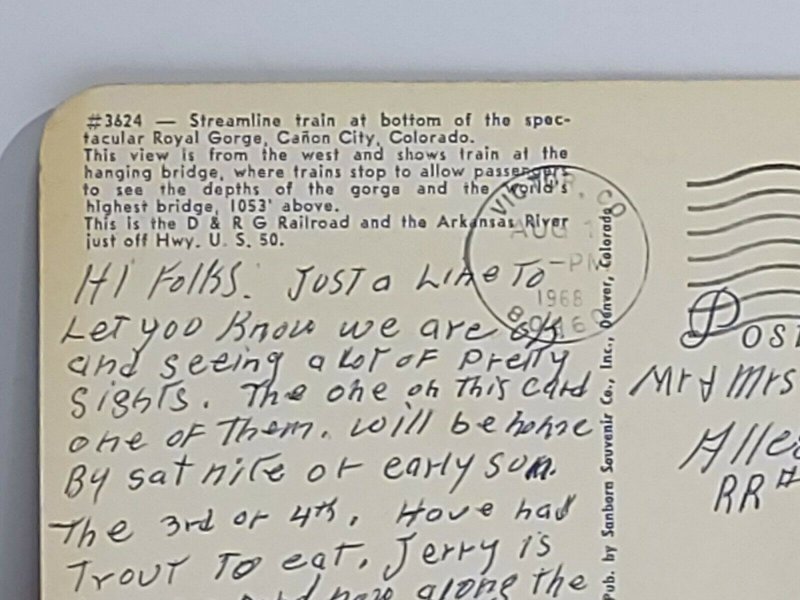 #3624 — Streamline train at bottom of the spec-
tacular Royal Gorge, Cañon City, Colorado.
This view is from the west and shows train at the
hanging bridge, where trains stop to allow passengers
to see the depths of the gorge and the world's
highest bridge, 1053' above.
This is the D & R G Railroad and the Arkansas River
just off Hwy. U. S. 50.
Hi Folks. Just a Line To
Let you Know we are ok
and seeing a Lot of Pretty
Sights. The one on This Card
one of Them. Will be home
By Sat nite or early Sun.
The 3rd or 4th. Have had
Trout To eat. Jerry is
along the
AUG 1
PM
1968
Pub. by Sanborn Souvenir Co., Inc., Denver, Colorado
Pos
Mr & Mrs
Alle
RR #